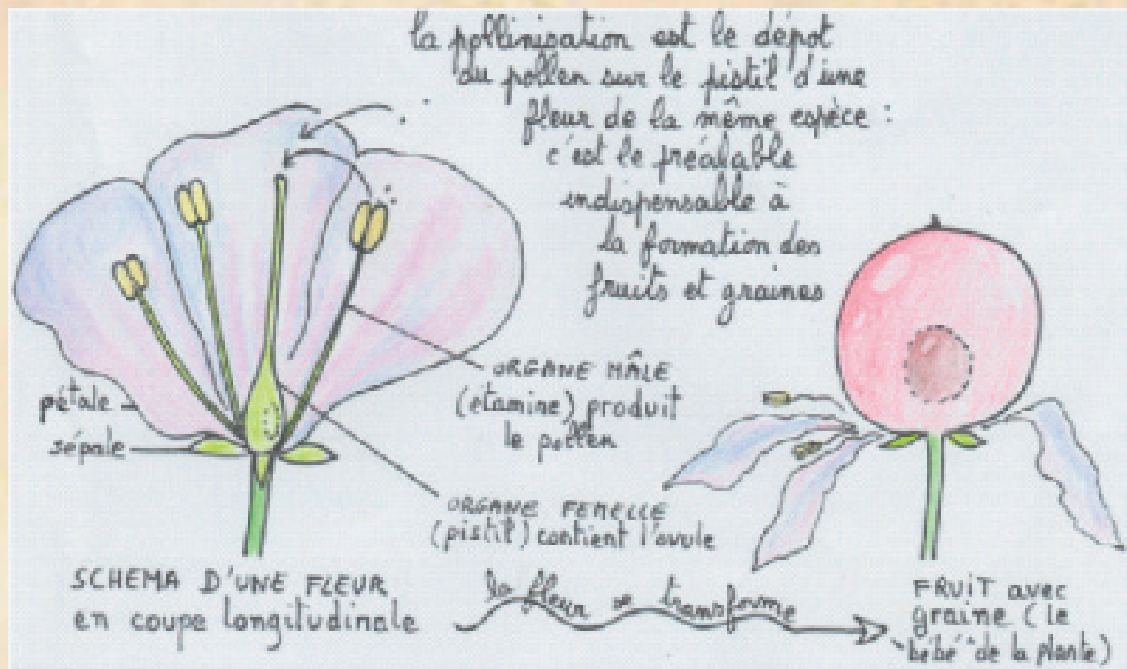 la pollinisation est le dépot
du pollen sur le pistil d'une
fleur de la même espèce :
c'est le préalable
indispensable à
la formation des
fruits et graines
ORGANE MÂLE
(étamine) produit
le pollen
pétale
sépale
ORGANE FEMELLE
(pistil) contient l'ovule
SCHEMA D'UNE FLEUR
en coupe longitudinale
la fleur se transforme
FRUIT avec
graine (le
"bébé" de la plante)